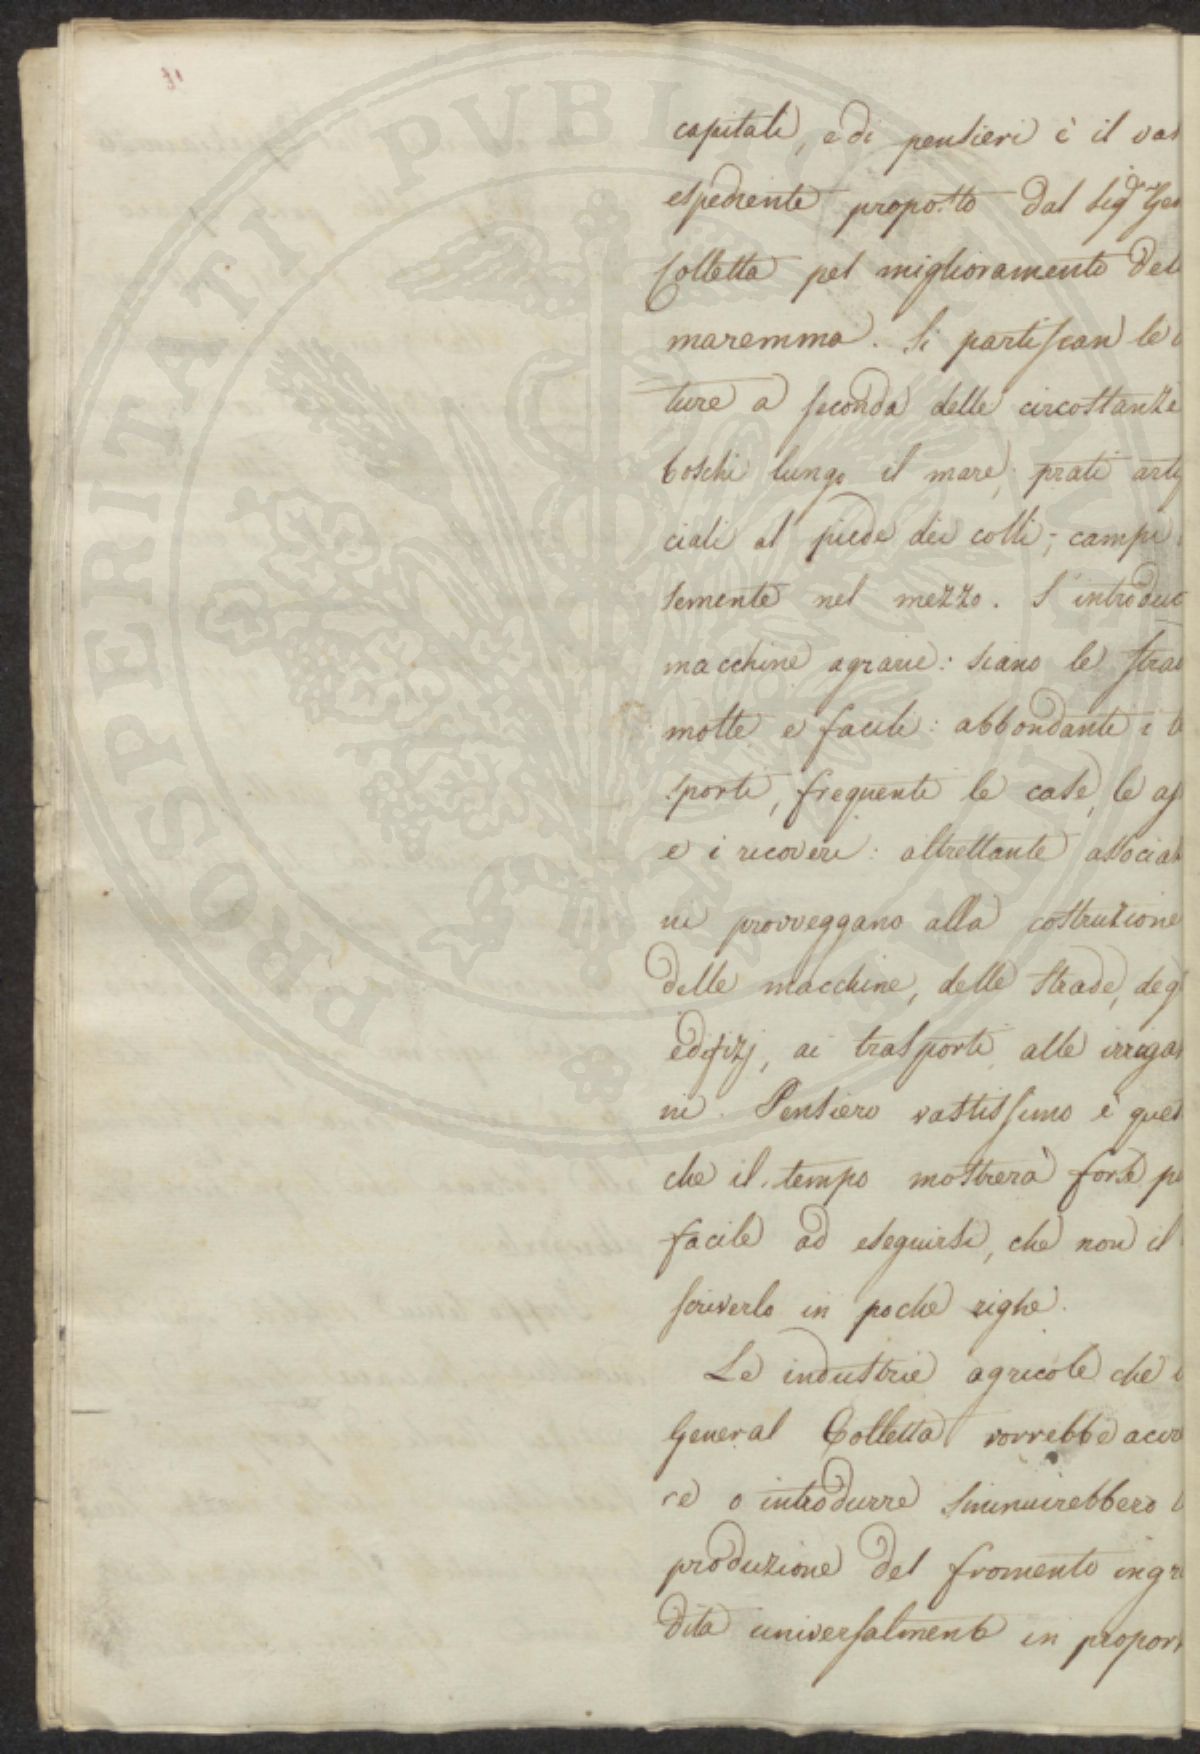 capitali, e di pensieri è il vas
espediente proposto dal Sigr Gen
Colletta pel miglioramento del
maremma. Si partiscan le
ture a seconda delle circostanze
boschi lungo il mare; prati arti
ciali al piede dei colli; campi
semente nel mezzo. S'introduc
macchine agrarie: siano le stra
molte e facili: abbondanti i
sporti, frequenti le case, le a
e i ricoveri: altrettante associa
ni provveggano alla costruzione
delle macchine, delle strade, deg
edifizj, ai trasporti, alle irriga
ni. Pensiero vastissimo è ques
che il tempo mostrerà forse p
facile ad eseguirsi, che non il
scriverlo in poche righe.
Le industrie agricole che
General Colletta vorrebbe accr
re o introdurre sminuirebbero
produzione del fromento ingr
dita universalmente in propor
PROSPERITATI PVBLICAE